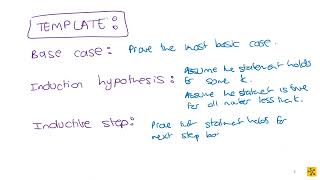 TEMPLATE:
Base case: Prove the most basic case.
Induction hypothesis: Assume the statement holds
for some k.
Assume the statement is true
for all number less than k.
Inductive step: Prove that statement holds for
next step too